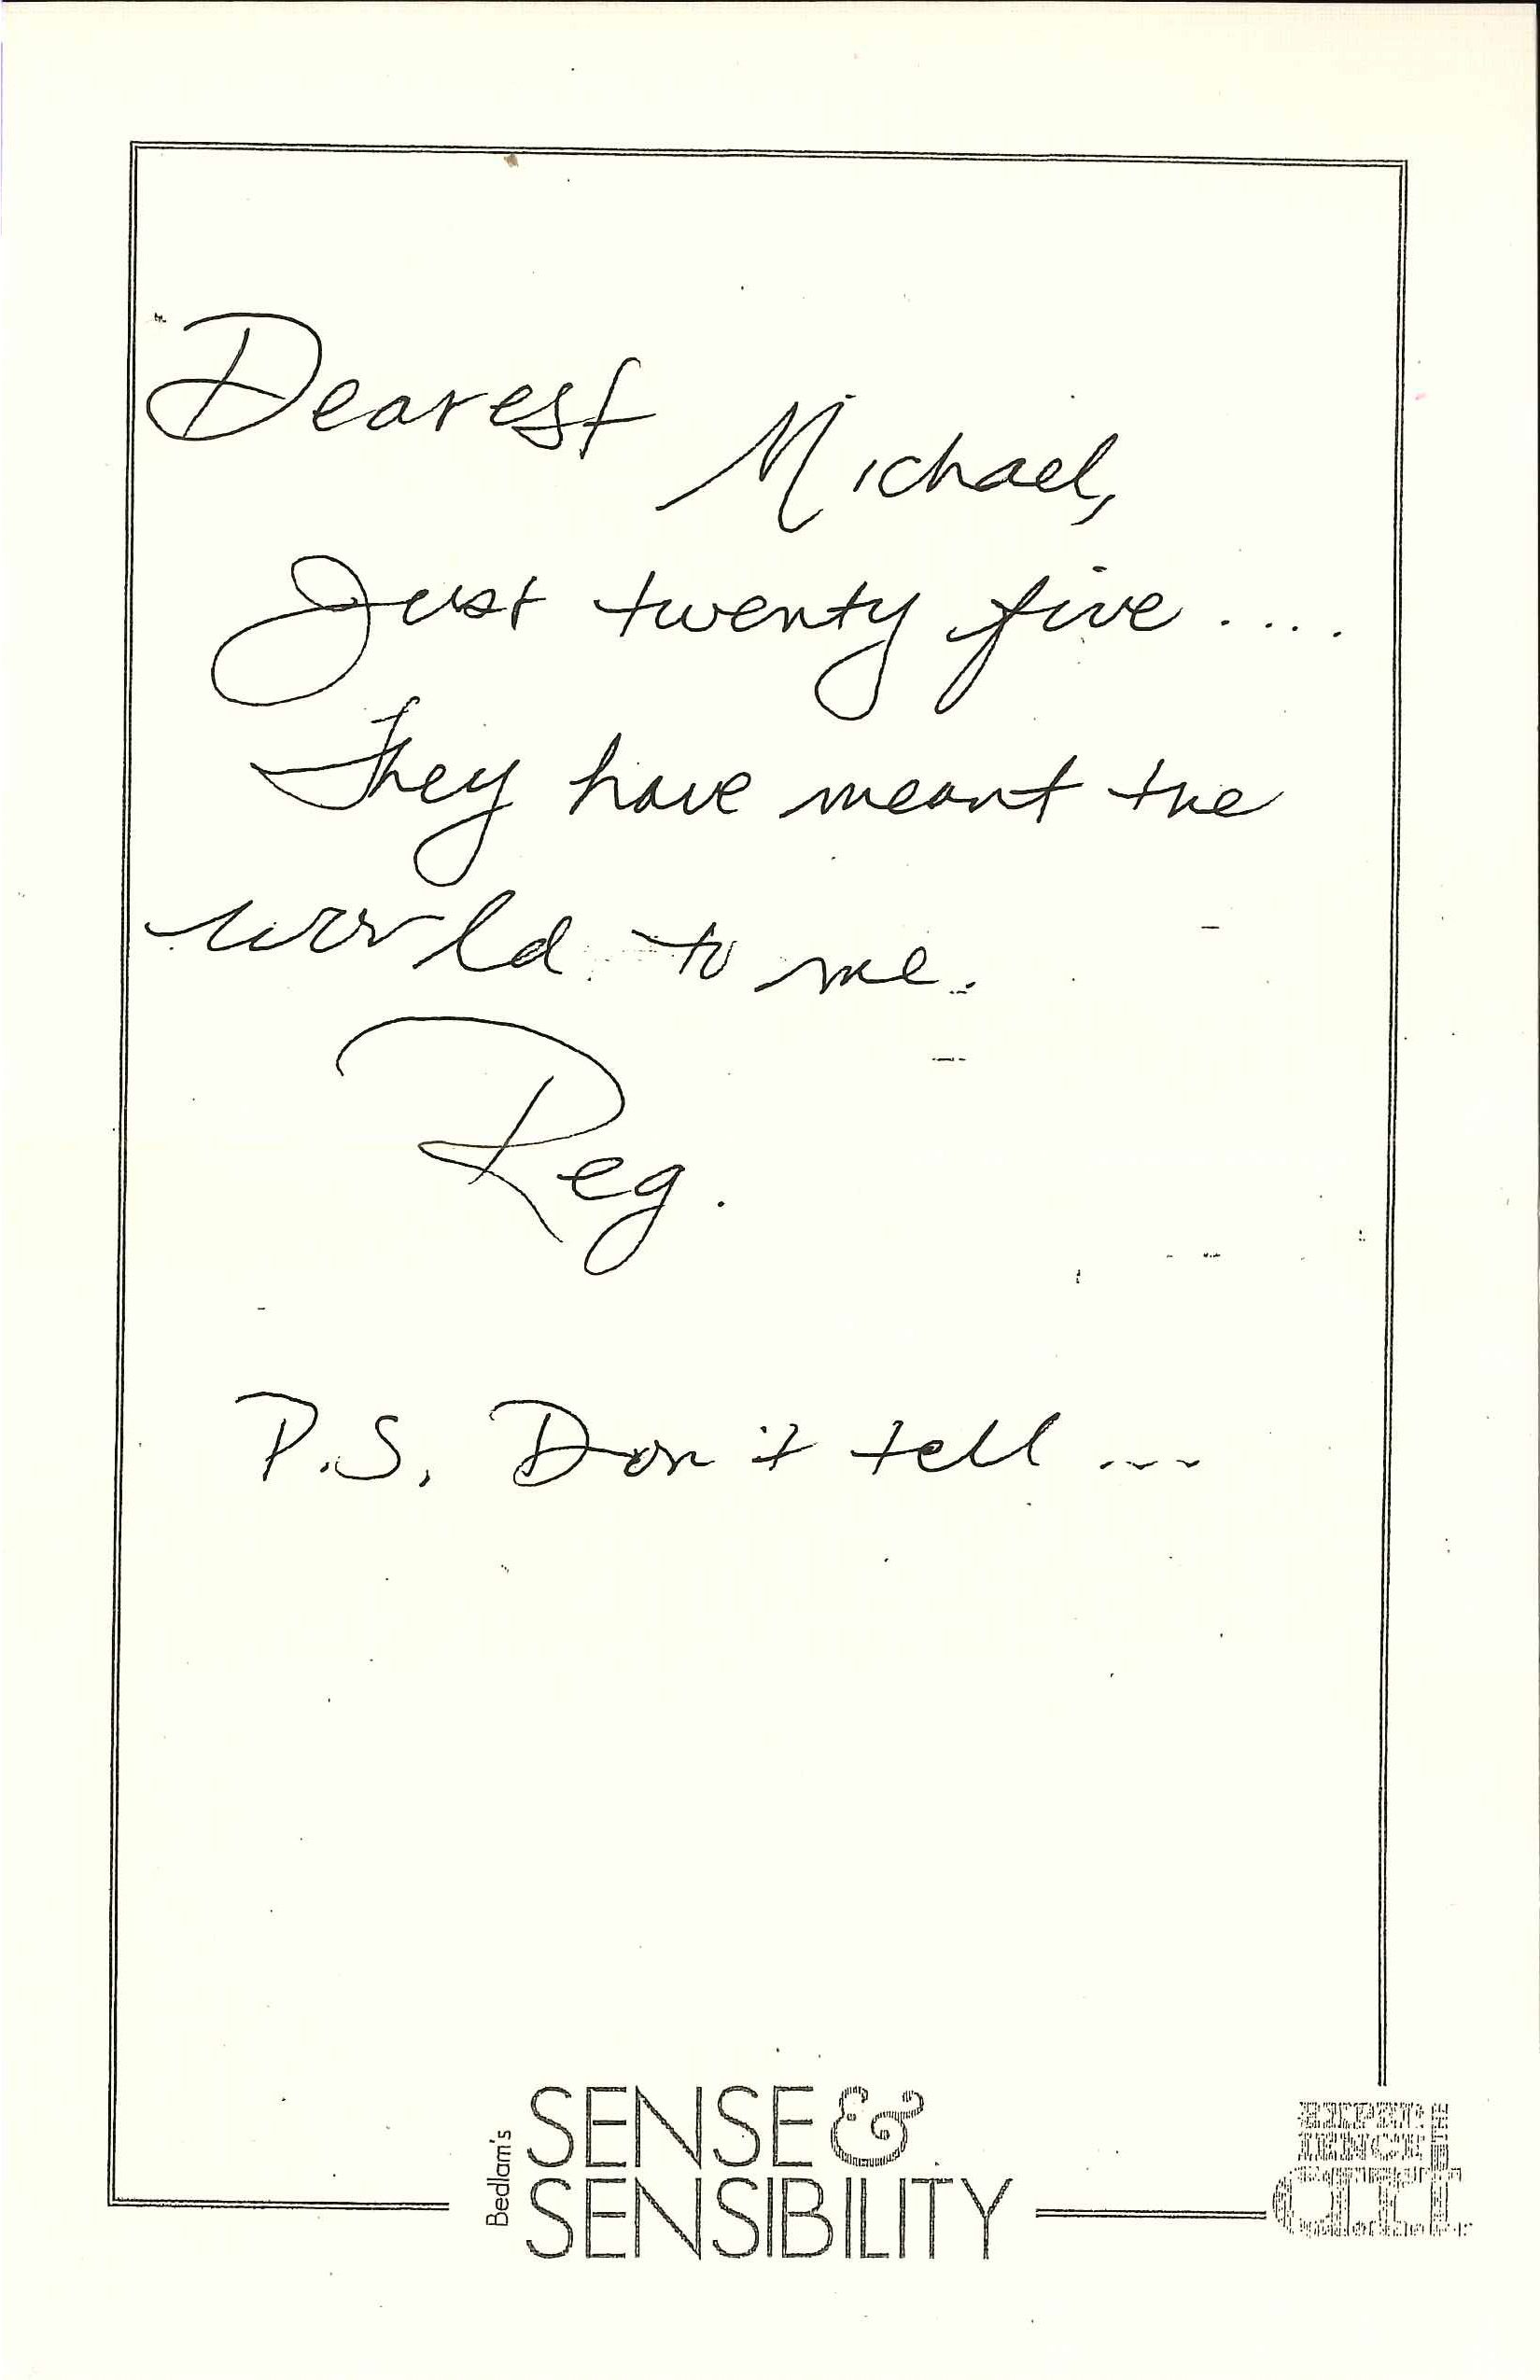 Dearest Michael,
Just twenty five....
They have meant the
world to me.
Reg.
P.S. Don't tell ...
Bedlam's
SENSE &
SENSIBILITY
EXPER
IENCE THE